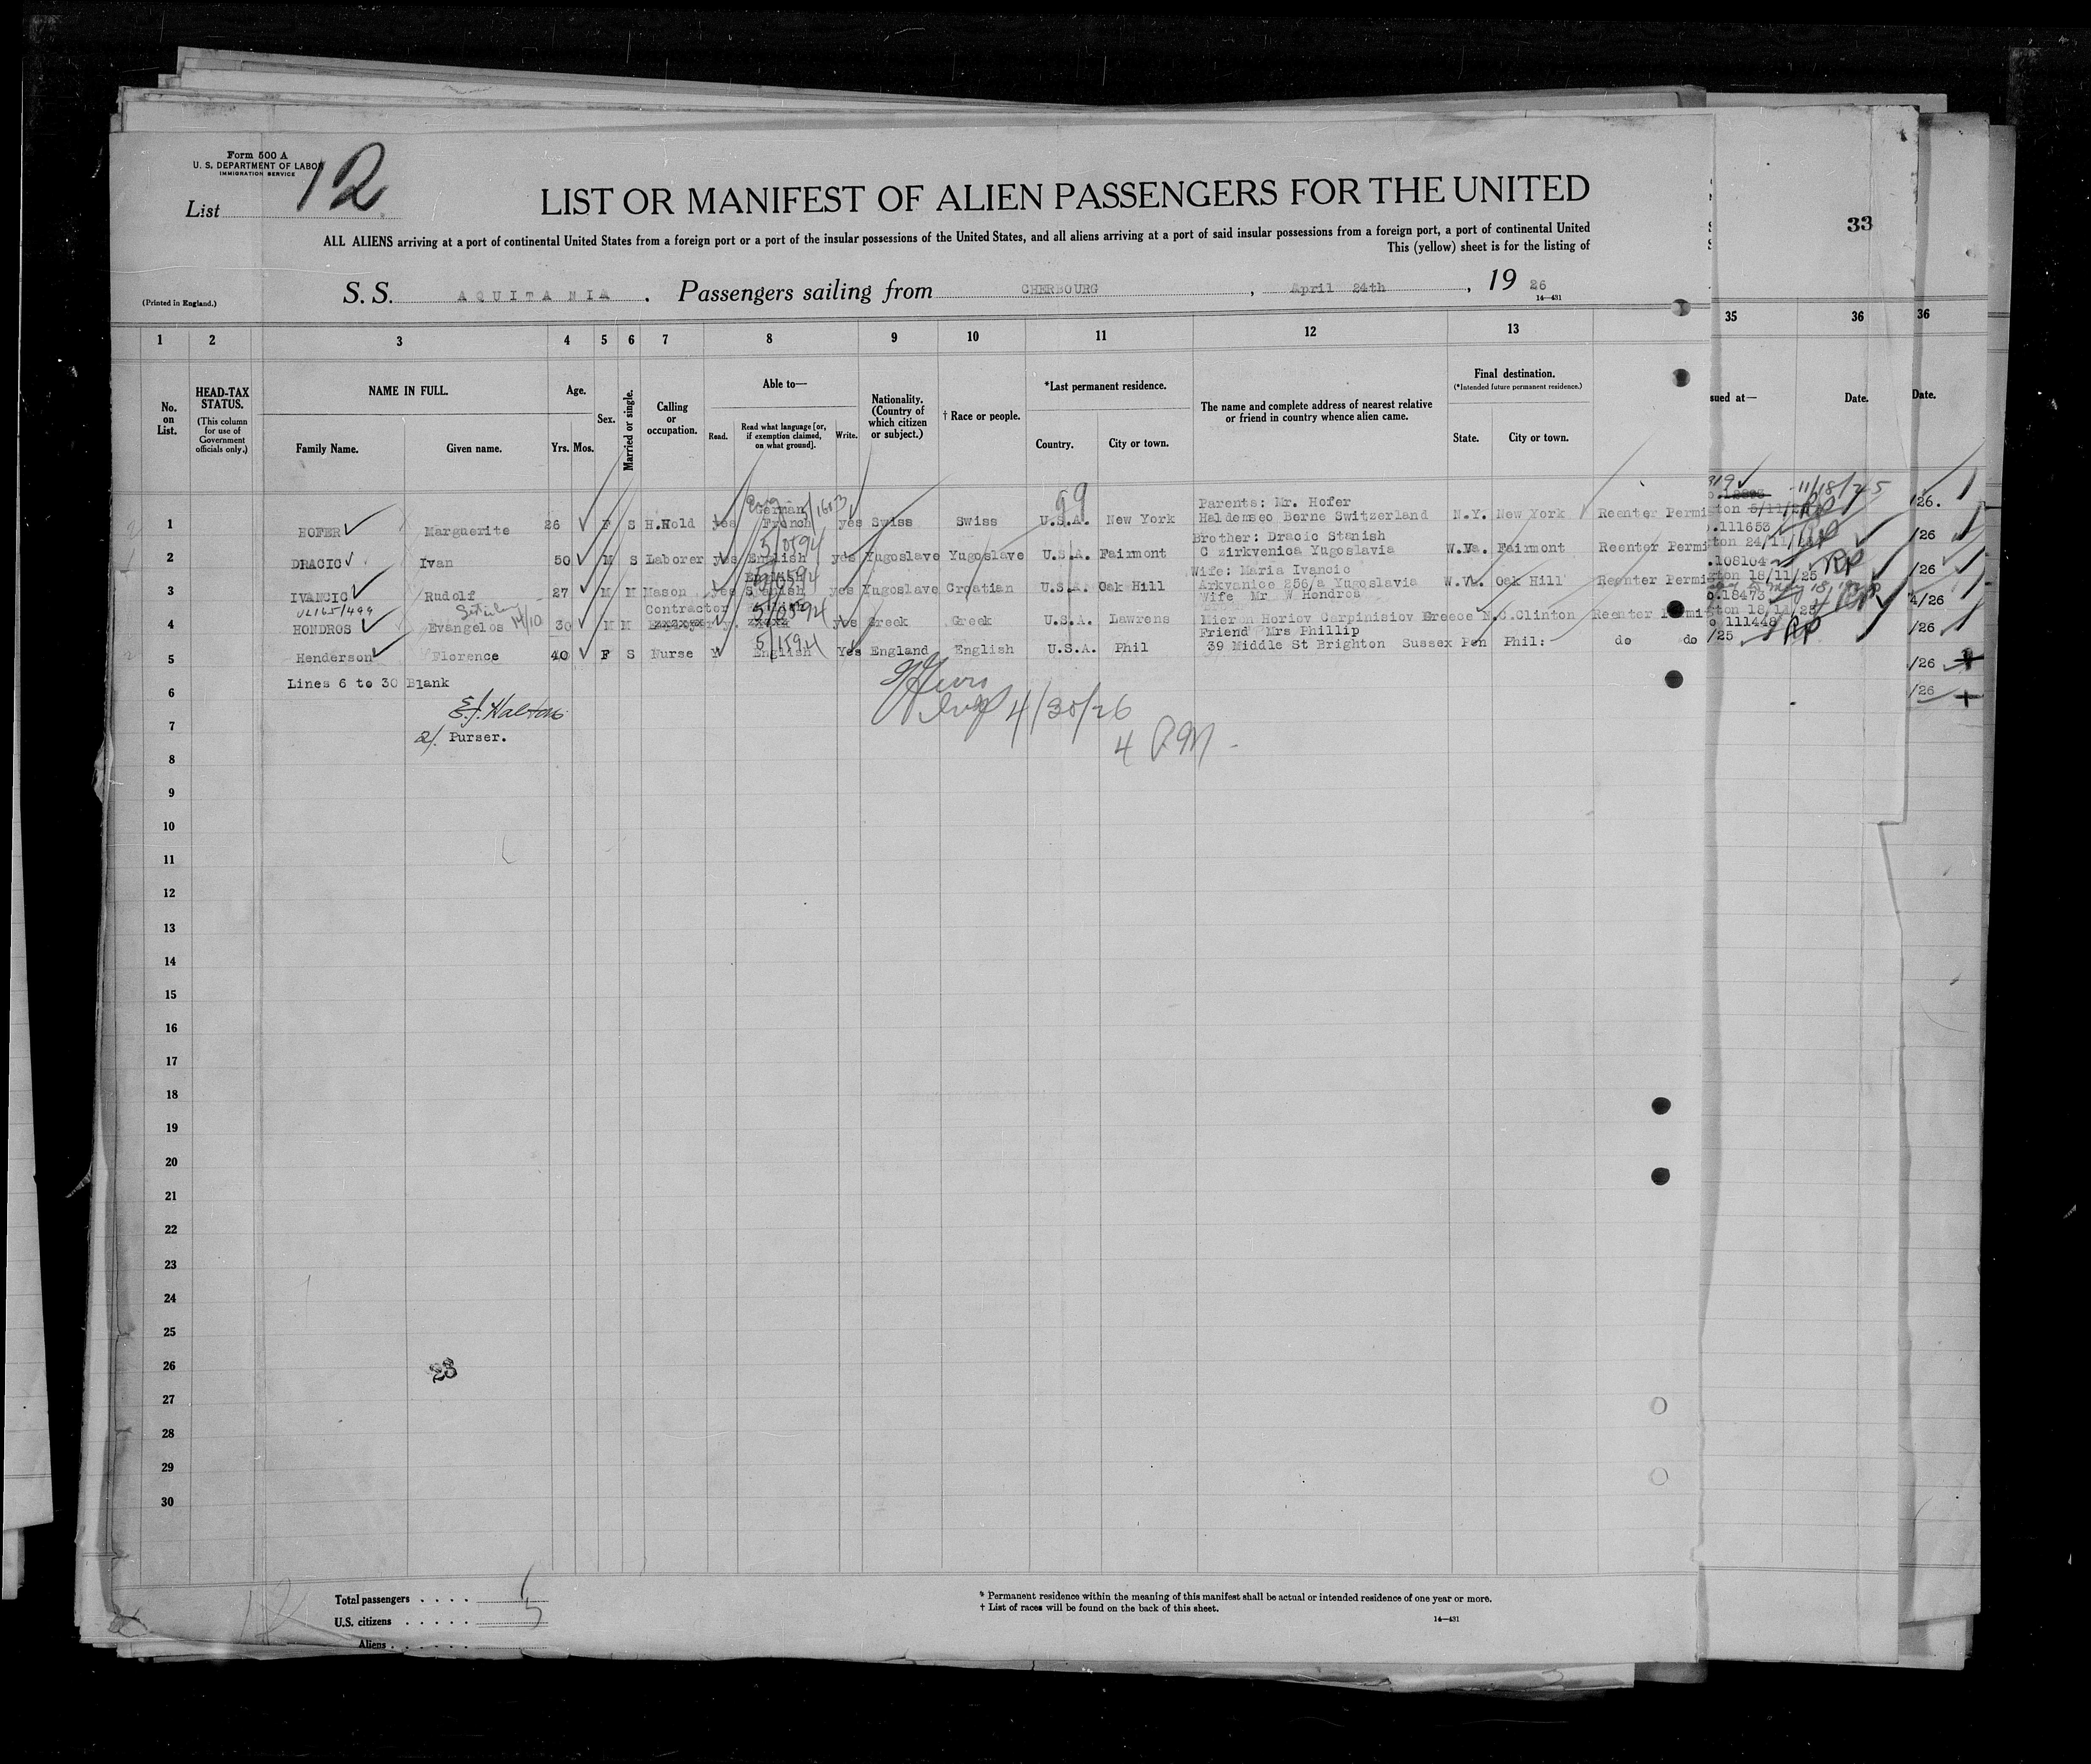 Form 500 A
U. S. DEPARTMENT OF LABOR
IMMIGRATION SERVICE
List 12
LIST OR MANIFEST OF ALIEN PASSENGERS FOR THE UNITED
33
ALL ALIENS arriving at a port of continental United States from a foreign port or a port of the insular possessions of the United States, and all aliens arriving at a port of said insular possessions from a foreign port, a port of continental United
This (yellow) sheet is for the listing of
(Printed in England.)
S. S. AQUITANIA . Passengers sailing from CHERBOURG , April 24th , 19 26
14—431
1 2 3 4 5 6 7 8 9 10 11 12 13 35 36 36
No. on List.
HEAD-TAX STATUS.
(This column for use of Government officials only.)
NAME IN FULL.
Family Name. Given name.
Age.
Yrs. Mos.
Sex.
Married or single.
Calling or occupation.
Able to—
Read. Read what language [or, if exemption claimed, on what ground]. Write.
Nationality. (Country of which citizen or subject.)
† Race or people.
*Last permanent residence.
Country. City or town.
The name and complete address of nearest relative or friend in country whence alien came.
Final destination.
(*Intended future permanent residence.)
State. City or town.
sued at— Date. Date.
99
Parents: Mr. Hofer
1 HOFER Marguerite 26 F S H.Hold yes German French yes Swiss Swiss U.S.A. New York Haldemseo Berne Switzerland N.Y. New York Reenter Permi
11/18/25
Brother: Dracic Stanish
2 DRACIC Ivan 50 M S Laborer yes English yes Yugoslave Yugoslave U.S.A. Fairmont C zirkvenica Yugoslavia W.Va. Fairmont Reenter Permi
.111653
ton 24/11/
Wife: Maria Ivancic
3 IVANCIC Rudolf 27 M M Mason yes Spanish yes Yugoslave Croatian U.S.A. Oak Hill Arkvanice 256/a Yugoslavia W.Va. Oak Hill Reenter Permi
.108104
ton 18/11/25
Contractor
Wife Mr W Hondros
4 HONDROS Evangelos 30 M M y. yes Greek Greek U.S.A. Lawrens Mieron Horiov Carpinisiov Greece N.C. Clinton Reenter Permi
.18473
ton 18/11/25
Friend Mrs Phillip
5 Henderson Florence 40 F S Nurse Y English Yes England English U.S.A. Phil 39 Middle St Brighton Sussex Pen Phil: do do
111448
/25
/26.
/26
/26
4/26
/26
/26
/26
6 Lines 6 to 30 Blank
7 Purser.
4/30/26
4 PM
8
9
10
11
12
13
14
15
16
17
18
19
20
21
22
23
24
25
26
27
28
29
30
Total passengers . . . . 5
U.S. citizens . . . . .
Aliens . . . . . .
* Permanent residence within the meaning of this manifest shall be actual or intended residence of one year or more.
† List of races will be found on the back of this sheet.
14—431